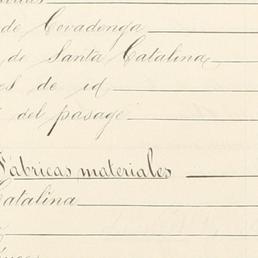 de Covadonga
de Santa Catalina
s de id
del pasage
Fabricas materiales
Catalina